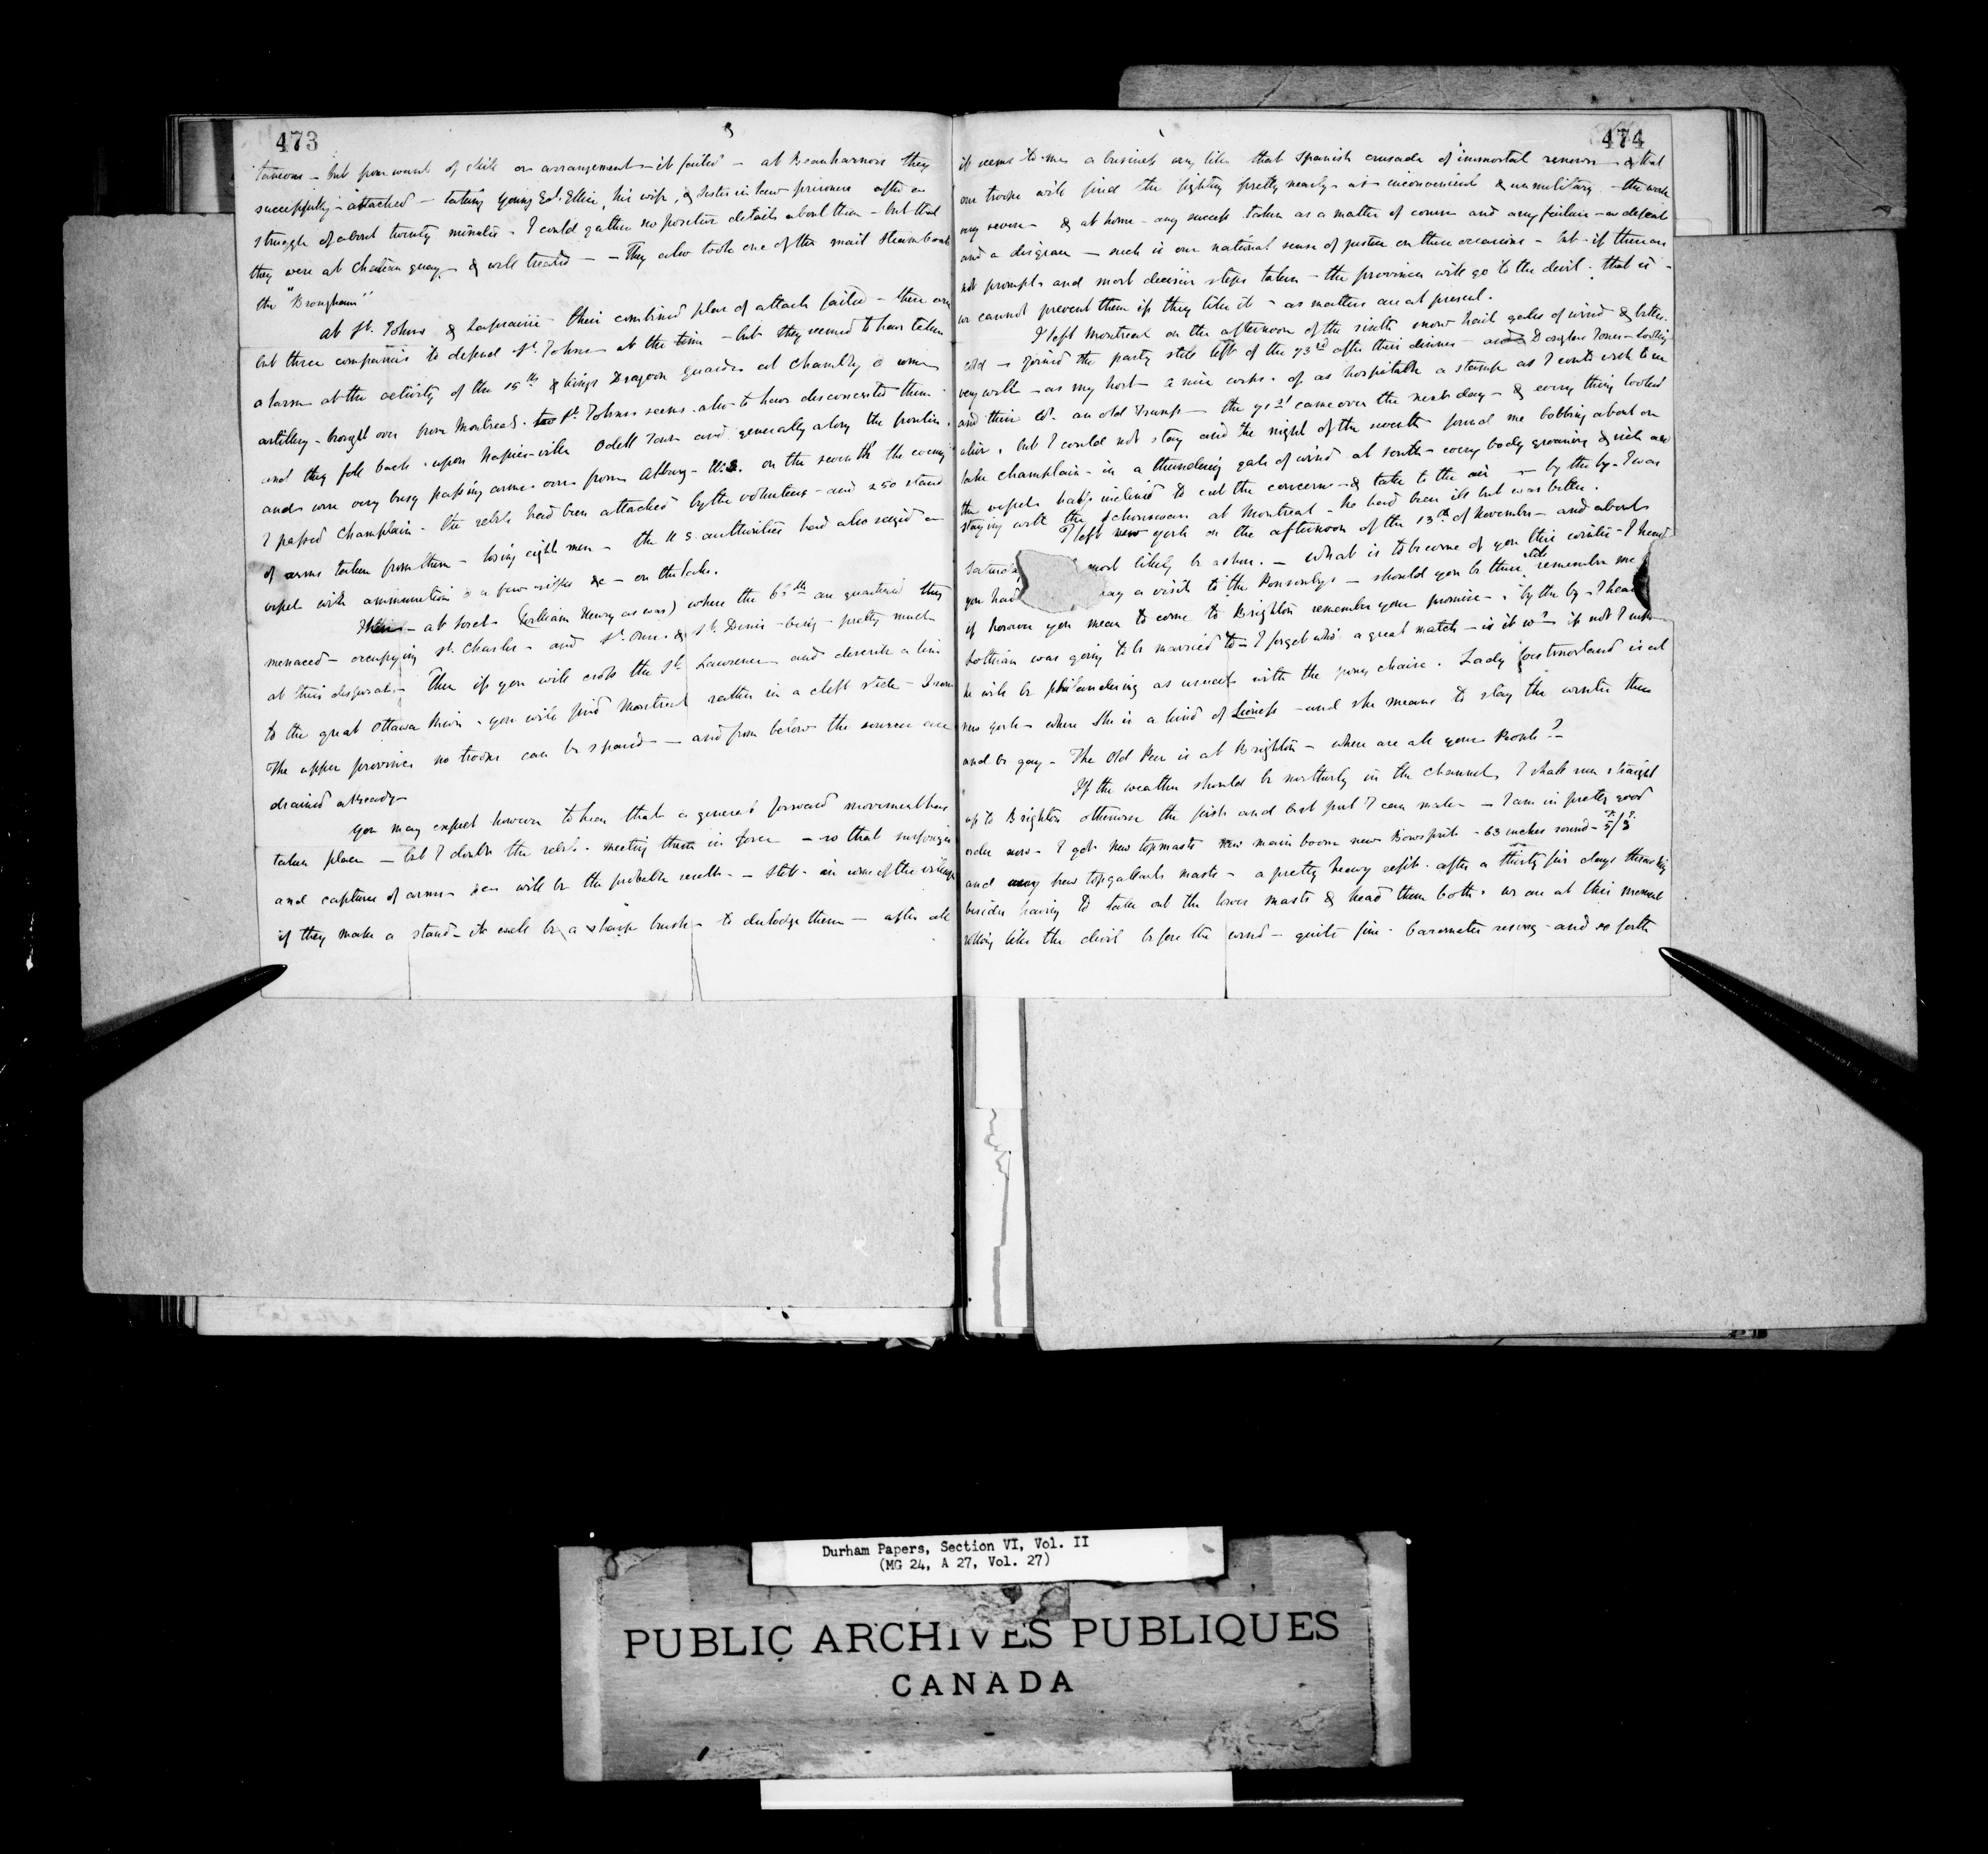 473
taneous - but from want of skill or arrangement - it failed - at Beauharnois they
successfully - attacked - taking young Ed. Ellice, his wife, & sister in law prisoners after a
struggle of about twenty minutes - I could gather no positive details about them - but that
they were at Chateauguay - & well treated - - They also took one of the mail steamboats
the "Brougham"
At St. Johns & Laprairie their combined plan of attack failed - there were
but three companies to defend St. Johns at the time - but they seemed to have taken
alarm at the activity of the 15th & Kings Dragoon guards at Chambly & some
artillery - brought over from Montreal. St. Johns seems also to have disconcerted them -
and they fell back upon Napierville Odell Town and generally along the frontier.
and were very busy passing arms over from Alburg - U.S. on the seventh the evening
I passed Champlain - the rebels had been attacked by the volunteers - and 250 stand
of arms taken from them - losing eight men - the U.S. authorities had also seized a
vessel with ammunition & a few rifles &c - on the lake.
- at Sorel (William Henry as was) where the 66th are quartered they
menaced - occupying St. Charles - and St. Ours & St. Denis - being - pretty much
at their disposal - Then if you will cross the St. Lawrence and describe a line
to the great Ottawa River - you will find Montreal rather in a cleft stick - From
the upper province no troops can be spared - and from below the sources are
drained already -
You may expect however to hear that a general forward movement has
taken place - but I doubt the rebels meeting them in force - so that
and capture of arms &c will be the probable result - - Still in some of the villages
if they make a stand - it will be a sharp brush - to dislodge them - after all
474
it seems to me a business very like that Spanish crusade of immortal renown - & that
our troops will find the fighting pretty nearly as inconvenient & unmilitary - the work
very severe - & at home - any success taken as a matter of course and any failure - a defeat
and a disgrace - such is our national sense of justice on these occasions - but if there are
not prompt & most decisive steps taken - the provinces will go to the devil - that is -
we cannot prevent them if they like it - as matters are at present.
I left Montreal on the afternoon of the sixth snow hail gales of wind & bitter
cold - joined the party still left of the 73rd after their dinner - Douglas Jones - looking
very well - as my host - a nice corps - of as hospitable a stamp as I could wish to see
and their Col. an old Trump - the 71st came over the next day - & every thing looked
alive, but I could not stay and the night of the seventh found me bobbing about on
lake Champlain - in a thundering gale of wind at south - every body groaning & sick and
the vessel half inclined to cut the concern - & take to the air - by the by - I was
staying with the at Montreal - he had been ill but was better.
I left new york on the afternoon of the 13th of November - and about
Saturday most likely be ashore. - What is to become of you this winter - I heard
you had pay a visit to the Ponsonbys - should you be there still remember me
if however you mean to come to Brighton remember your promise - by the by - I hear
Lothian was going to be married to - I forget who a great match - is it so - if not I
he will be philandering as usual with the young chaise. Lady Westmorland is at
new york - where she is a kind of Lioness - and she means to stay the winter there
and be gay - The Old Peer is at Brighton - where are all your People? -
If the weather should be northerly in the channel, I shall run straight
up to Brighton otherwise the first and best port I can make - I am in pretty good
order now - I got new topmasts new main boom new Bowsprit - 63 inches round - 5/3
and new topgallant masts - a pretty heavy refit - after a thirty five days thrashing
besides having to take out the lower masts & head them both - we are at this moment
rolling like the devil before the wind - quite fine - barometer rising - and so forth
Durham Papers, Section VI, Vol. II
(MG 24, A 27, Vol. 27)
PUBLIC ARCHIVES PUBLIQUES
CANADA